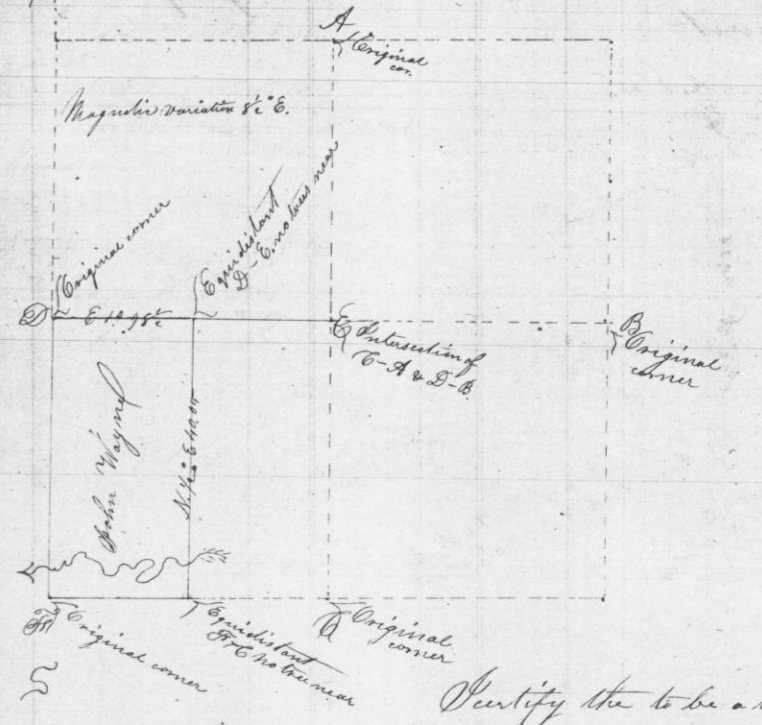 A
Original
cor.
Magnetic variation 8½° E.
Original corner
Equidistant
D-E. no trees near
D
E 19.98½
E
Intersection of
C-A & D-B.
B
Original
corner
John Wayne
N. ½° E 40.00
F
Original corner
Equidistant
F & C no tree near
C
Original
corner
I certify the to be a